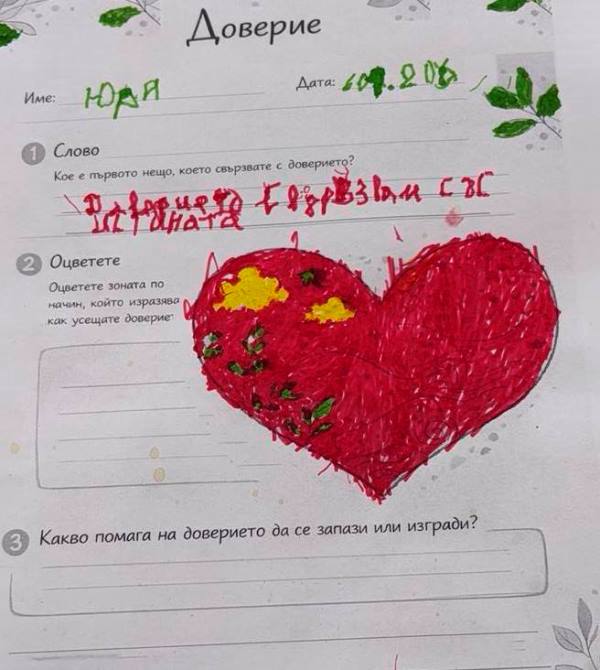 Доверие
Име: ЮРЯ Дата:
1 Слово
Кое е първото нещо, което свързвате с доверието?
Доверието свързвам със
истината
2 Оцветете
Оцветете зоната по
начин, който изразява
как усещате доверие
3 Какво помага на доверието да се запази или изгради?